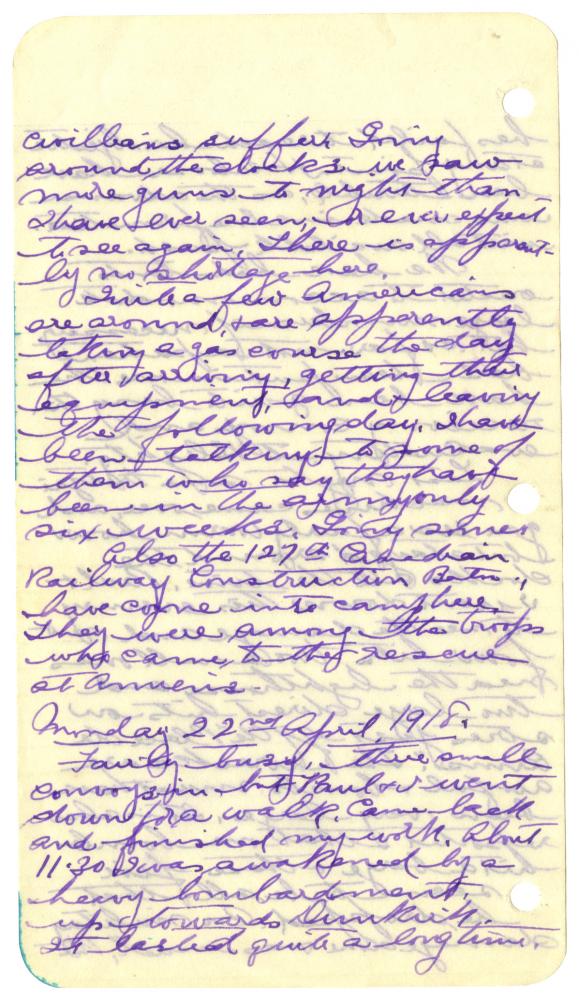 civilians suffer. Going
around the docks we saw
more guns to night than
I have ever seen, or ever expect
to see again. There is apparent-
ly no shortage here.
Quite a few Americans
are around, & are apparently
taking a gas course the day
after arriving, getting their
equipment, and leaving
the following day. I have
been talking to some of
them who say they have
been in the army only
six weeks. Going some!
Also the 127th Canadian
Railway Construction Batn.,
have come into camp here.
They were among the troops
who came to the rescue
at Amiens.
Monday 22nd April, 1918.
Fairly busy, three small
convoys in but Paul & I went
down for a walk. Came back
and finished my work. About
11.30 I was awakened by a
heavy bombardment,
up towards Dunkirk.
It lasted quite a long time.